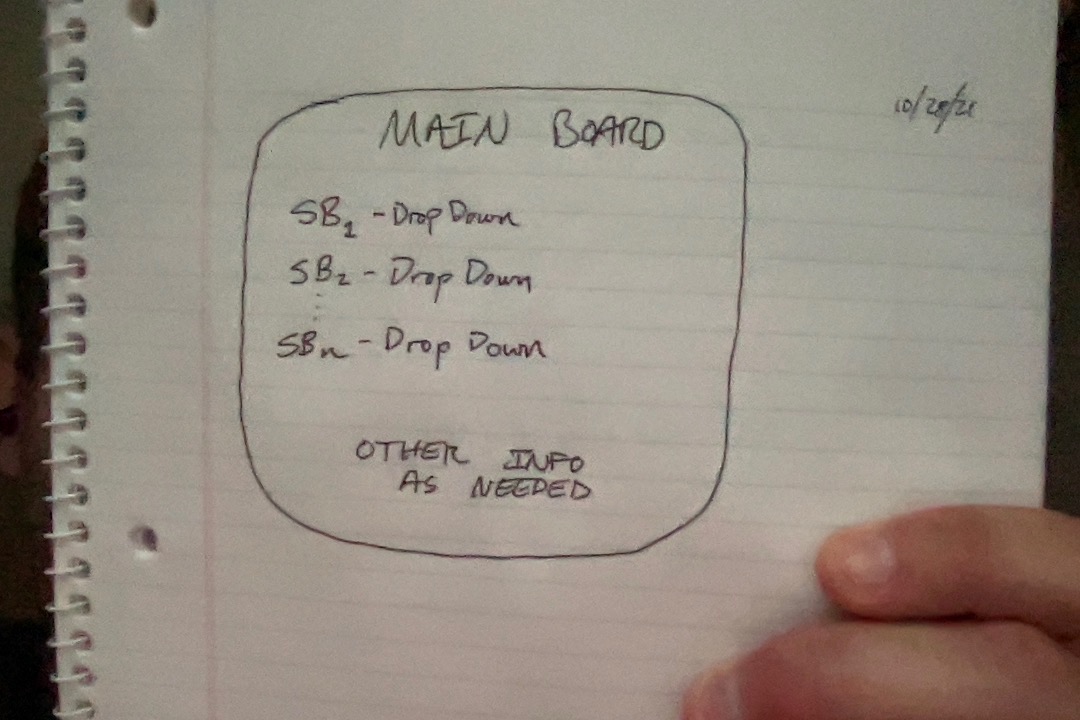 10/28/21
MAIN BOARD
SB₁ - Drop Down
SB₂ - Drop Down
⋮
SBₙ - Drop Down
OTHER INFO
AS NEEDED